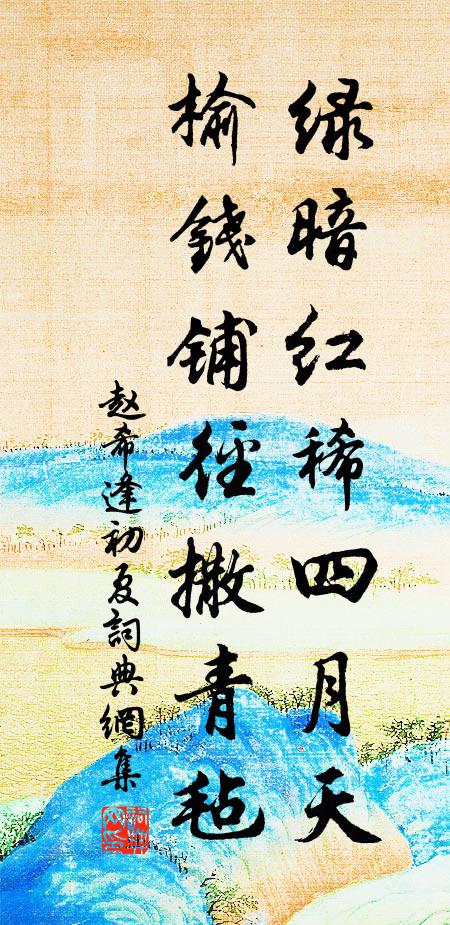 绿暗红稀四月天
榆钱铺径撒青毡
赵希逢初夏詞典網集